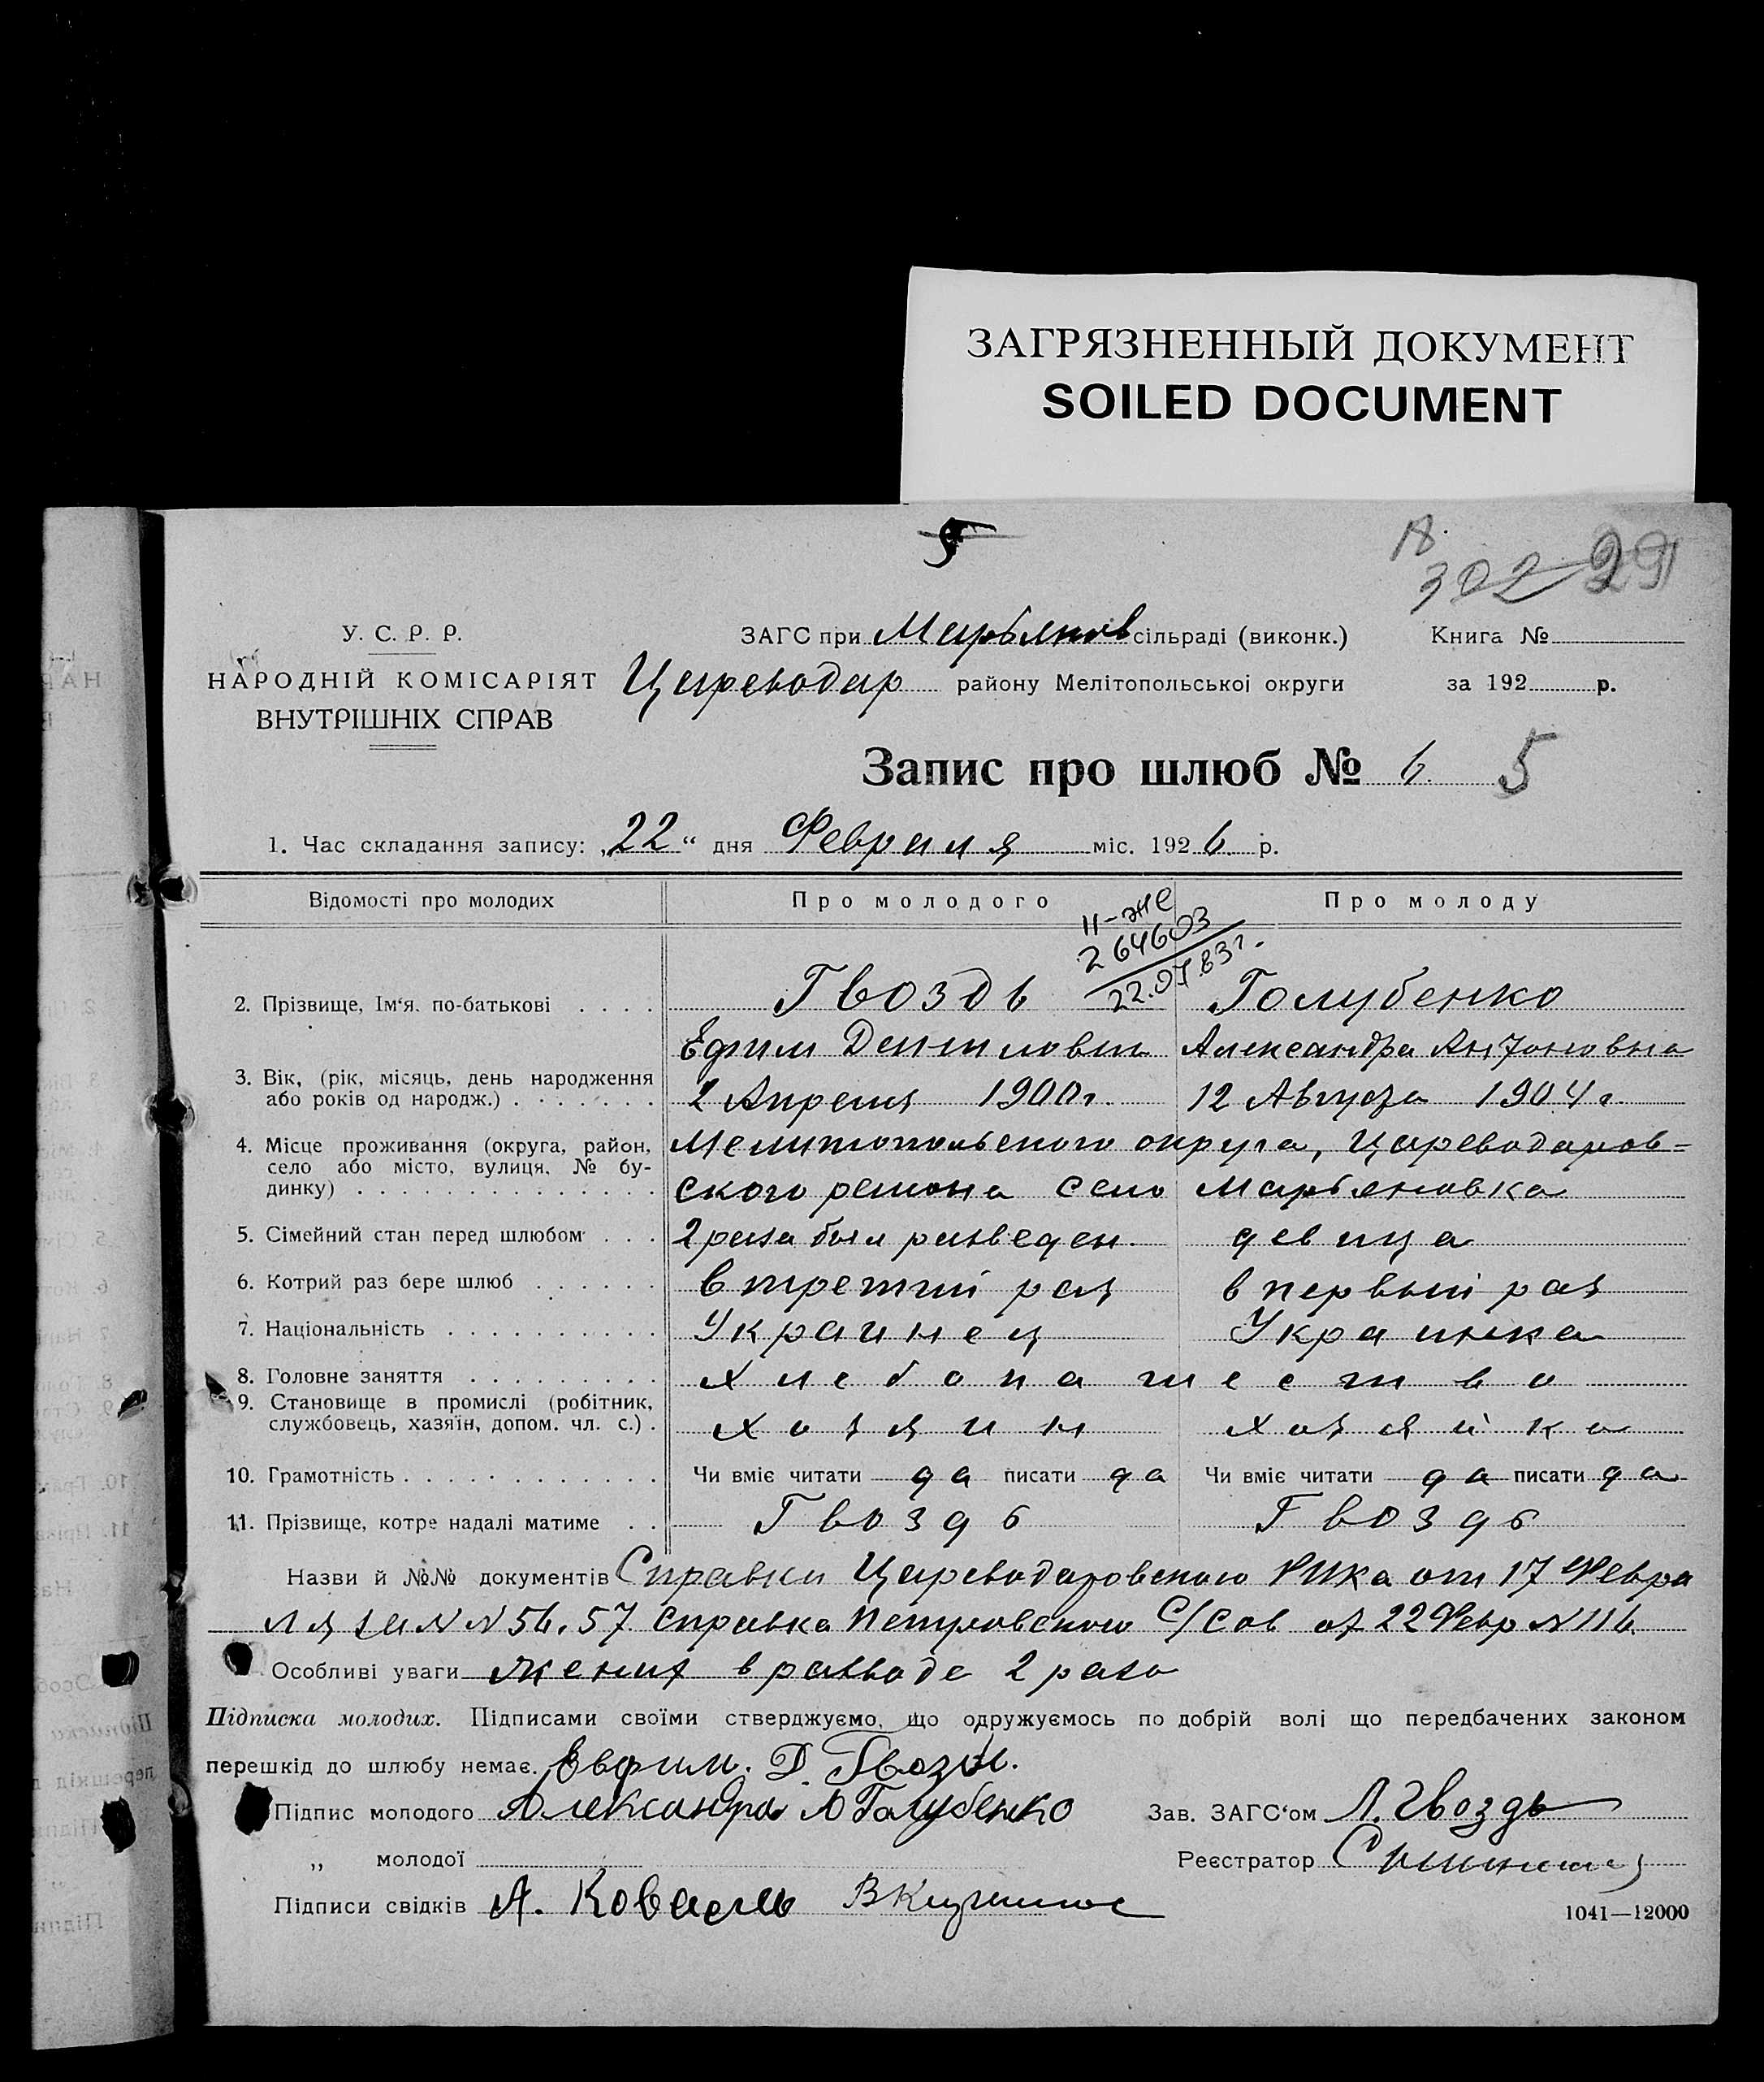 ЗАГРЯЗНЕННЫЙ ДОКУМЕНТ
SOILED DOCUMENT
5
302 29
У. С. Р. Р.
НАРОДНІЙ КОМІСАРІЯТ
ВНУТРІШНІХ СПРАВ
ЗАГС при Марьянов сільраді (виконк.)
Цареводар району Мелітопольської округи
Книга №
за 192 р.
Запис про шлюб № 6. 5
1. Час складання запису: „22“ дня Февраля міс. 1926. р.
Відомості про молодих Про молодого Про молоду
II-ЖС
264603
22.07.83г.
2. Прізвище, Ім‘я, по-батькові Гвоздь Голубенко
Ефим Данилович Александра Антоновна
3. Вік, (рік, місяць, день народження
або років од народж.) 2 Апреля 1900г. 12 Августа 1904г.
4. Місце проживання (округа, район, Мелитопольского округа, Цареводаров=
село або місто, вулиця, № бу-
динку) ского района село Марьяновка
5. Сімейний стан перед шлюбом 2 раза был разведен. девица
6. Котрий раз бере шлюб в третий раз в первый раз
7. Національність Украинец Украинка
8. Головне заняття Хлебопашество
9. Становище в промислі (робітник,
службовець, хазяїн, допом. чл. с.) хозяин хозяйка
10. Грамотність Чи вміє читати да писати да Чи вміє читати да писати да
11. Прізвище, котре надалі матиме Гвоздь Гвоздь
Назви й №№ документів Справки Цареводаровского РИКа от 17 Февра
ля за N N 56, 57. справка Петровского С/Сов от 22 Февр N 116.
Особливі уваги жених в разводе 2 раза
Підписка молодих. Підписами своїми стверджуємо, що одружуємось по добрій волі що передбачених законом
перешкід до шлюбу немає. Евфим. Д. Гвоздь.
Підпис молодого Александра А Голубенко Зав. ЗАГС‘ом Л. Гвоздь
„ молодої Реєстратор
Підписи свідків А. Коваль
1041—12000